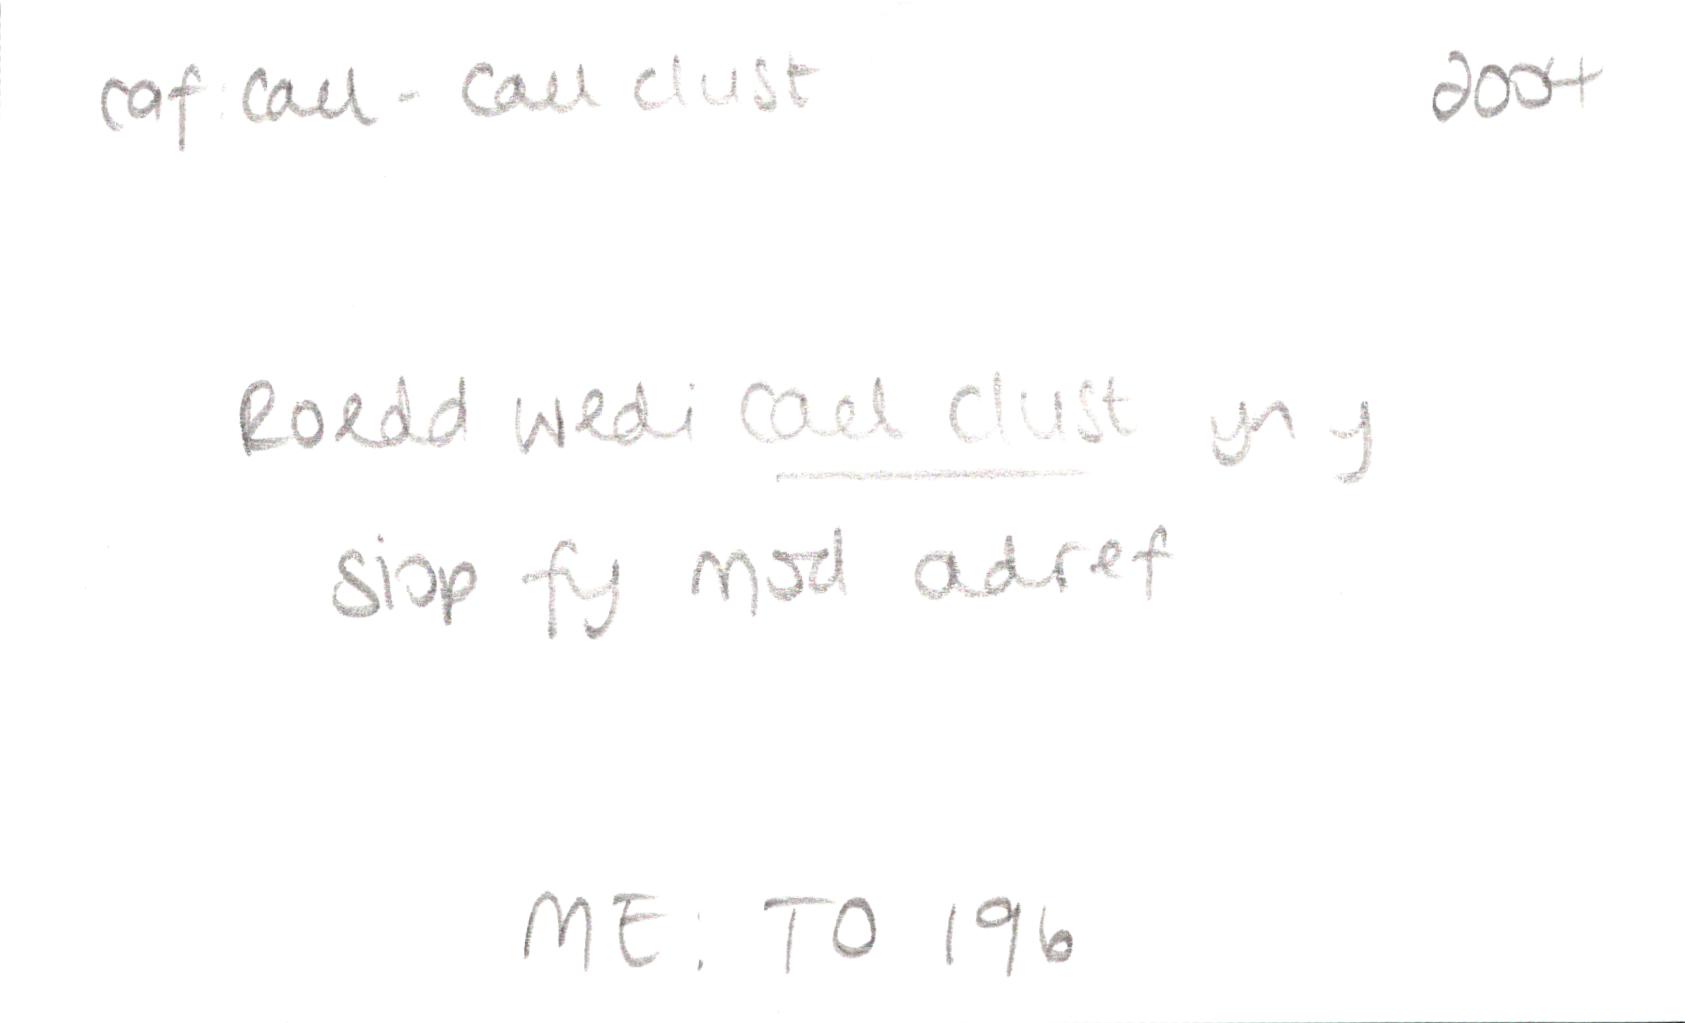 caf: cael - cael clust 2004
Roedd wedi cael clust yn y
siop fy mod adref
ME: TO 196